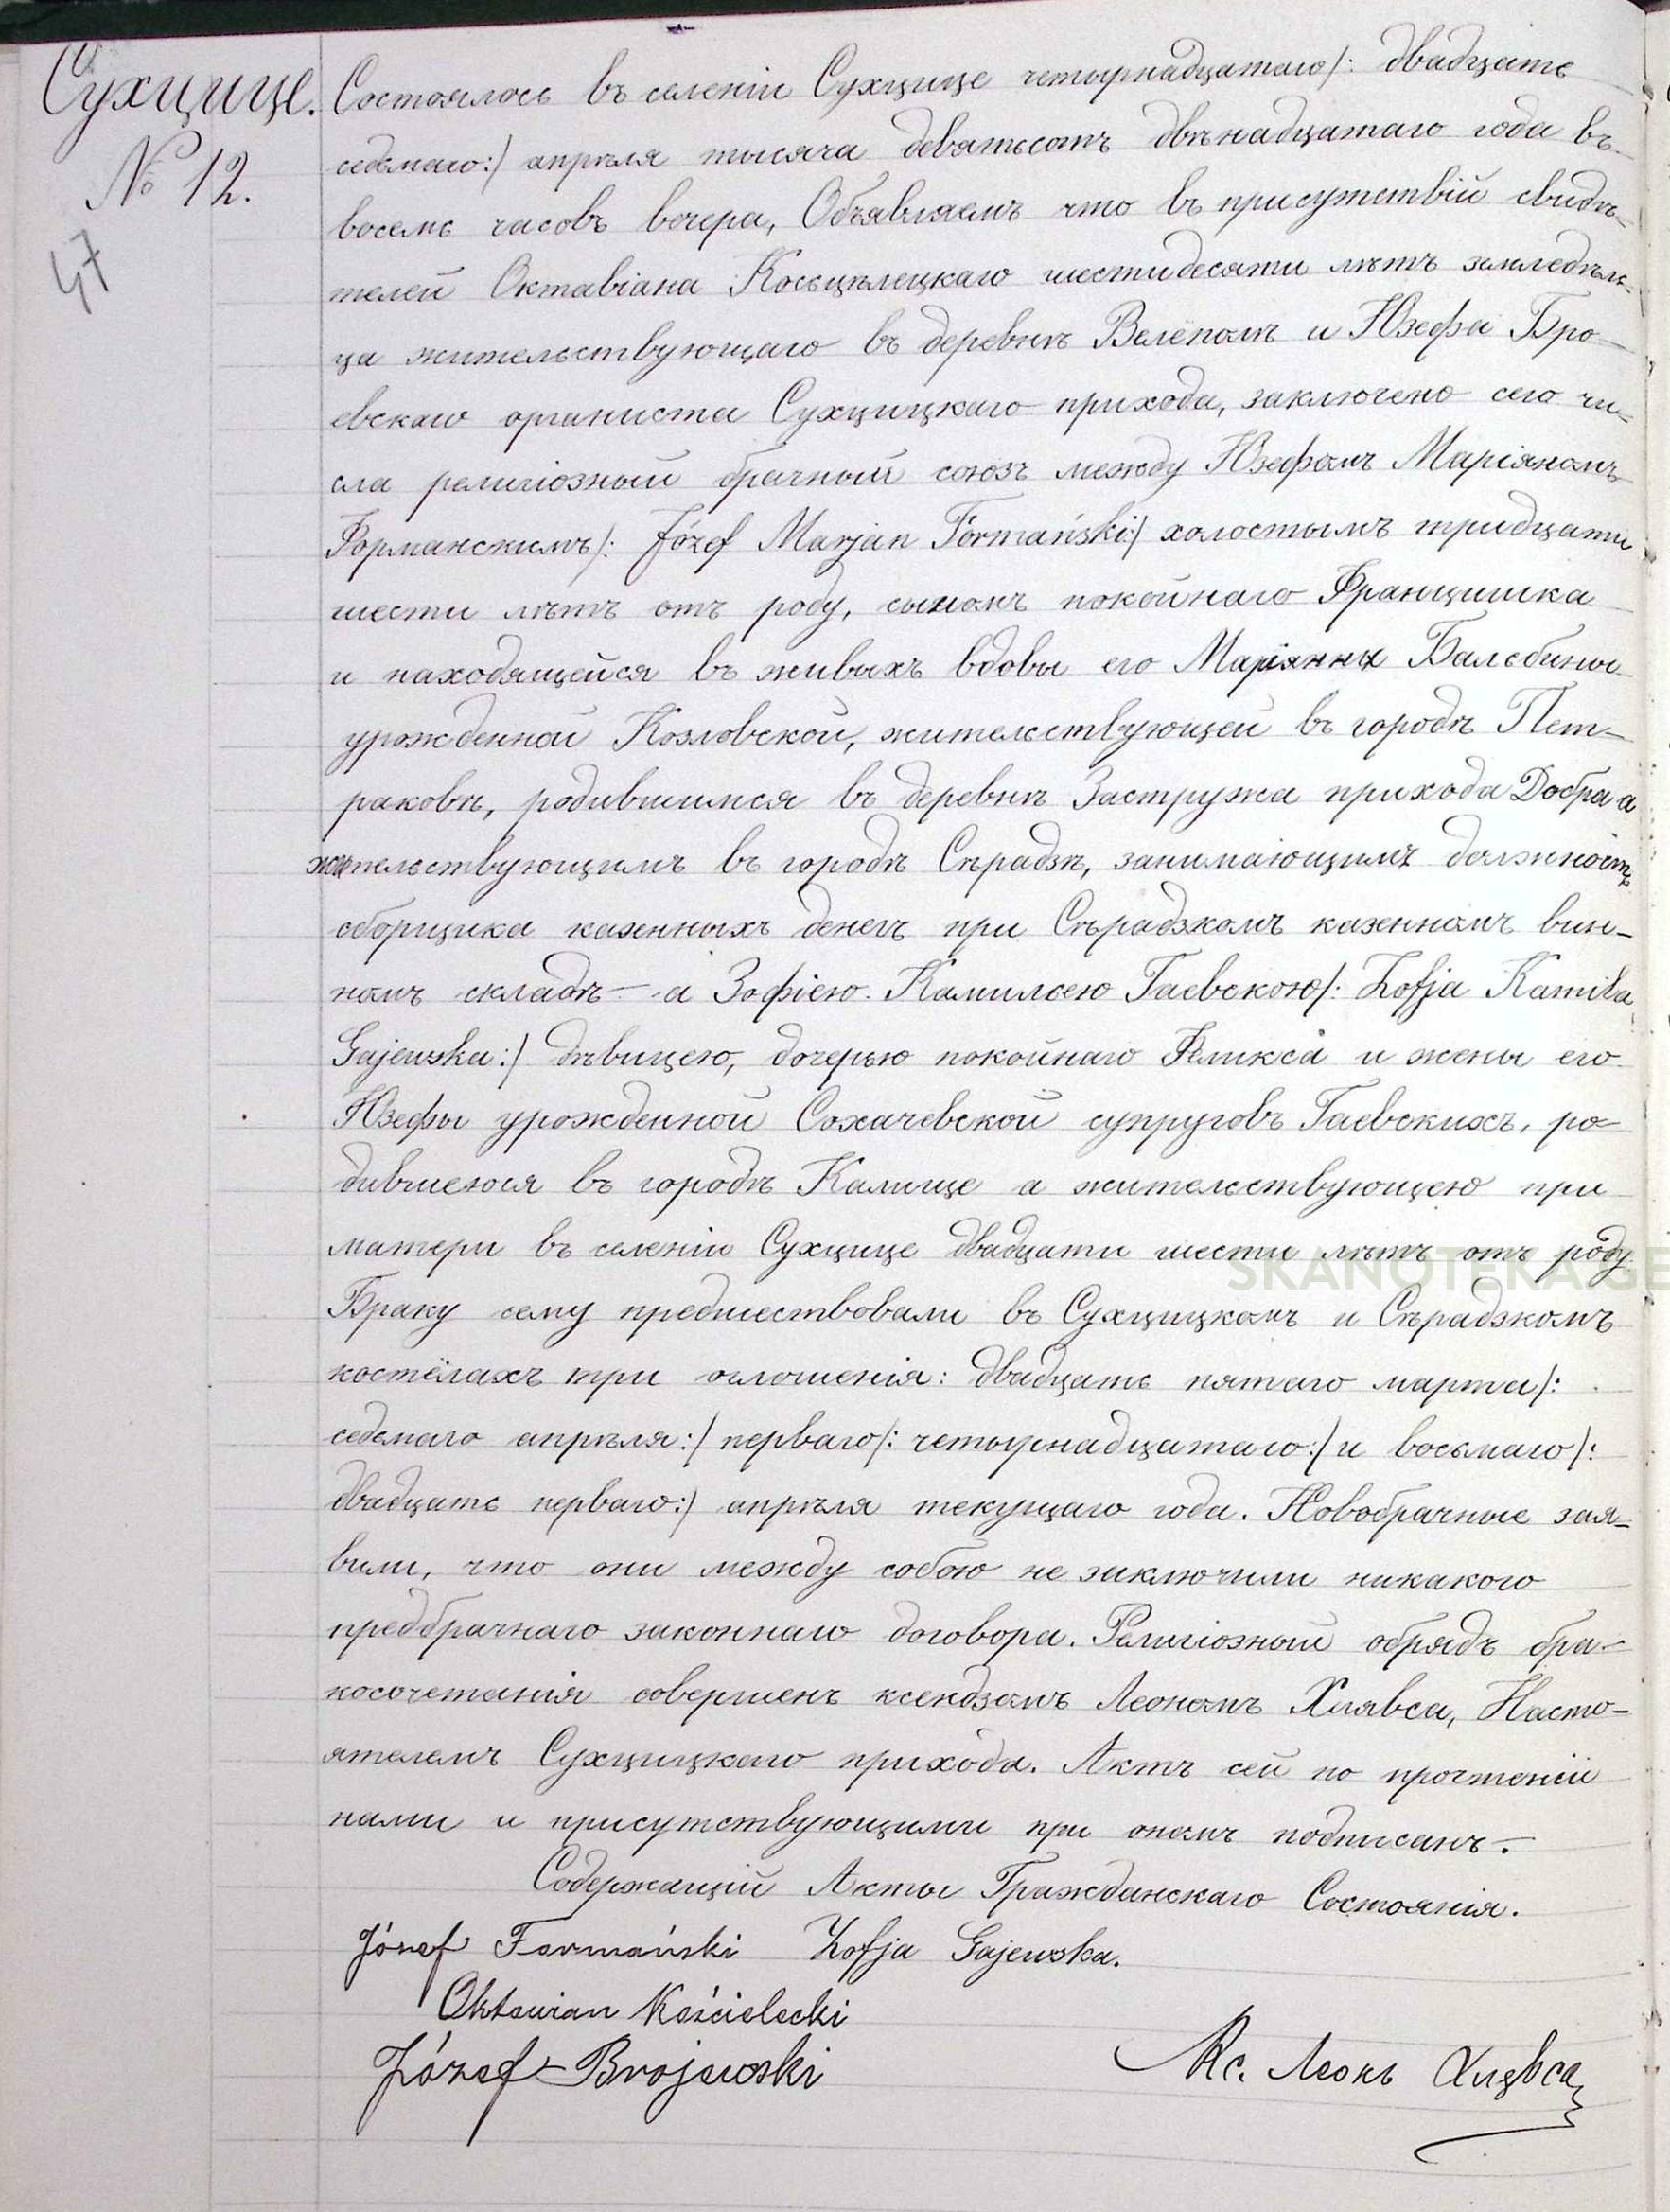 Сухцице.
№ 12.
47
Состоялось въ селеніи Сухцице четырнадцатаго/: двадцать
седьмаго:/ апрѣля тысяча девятьсотъ двѣнадцатаго года въ
восемь часовъ вечера, Объявляемъ что въ присутствій свидѣ-
телей Октавіана Косьцѣлецкаго шестидесяти лѣтъ земледѣль-
ца жительствующаго въ деревнѣ Велёполѣ и Юзефа Бро-
евскаго органиста Сухцицкаго прихода, заключено сего чи-
сла религіозный брачный союзъ между Юзефомъ Маріяномъ
Форманскимъ/: Józef Marjan Formański:/ холостымъ тридцати
шести лѣтъ отъ роду, сыномъ покойнаго Францишка
и находящейся въ живыхъ вдовы его Маріянны Бальбины
урожденной Козловской, жительствующей въ городѣ Пет-
раковѣ, родившимся въ деревнѣ Застружа прихода Добра а
жительствующимъ въ городѣ Сѣрадзѣ, занимающимъ должность
сборщика казенныхъ денегъ при Сѣрадзкомъ казенномъ вин-
номъ складѣ - а Зофіею Камильею Гаевскою/: Zofja Kamila
Gajewska:/ дѣвицею, дочерью покойнаго Феликса и жены его
Юзефы урожденной Сохачевской супруговъ Гаевскихъ, ро-
дившеюся въ городѣ Калише а жительствующею при
матери въ селеніи Сухцице двадцати шести лѣтъ отъ роду.
Браку сему предшествовали въ Сухцицкомъ и Сѣрадзкомъ
костёлахъ три оглошенія: двадцать пятаго марта/:
седьмаго апрѣля:/ перваго/: четырнадцатаго:/ и восьмаго/:
двадцать перваго:/ апрѣля текущаго года. Новобрачные зая-
вили, что они между собою не заключили никакого
предбрачнаго законнаго договора. Религіозный обрядъ бра-
косочетанія совершенъ ксендзомъ Леономъ Хлявса, Насто-
ятелемъ Сухцицкаго прихода. Актъ сей по прочтеніи
нами и присутствующими при ономъ подписанъ.-
Содержащій Акты Гражданскаго Состоянія.
Józef Formański Zofja Gajewska.
Oktawian Kościelecki
Józef Brojewski
Кс. Леонъ Хлявса
SKANOTEKA.GE